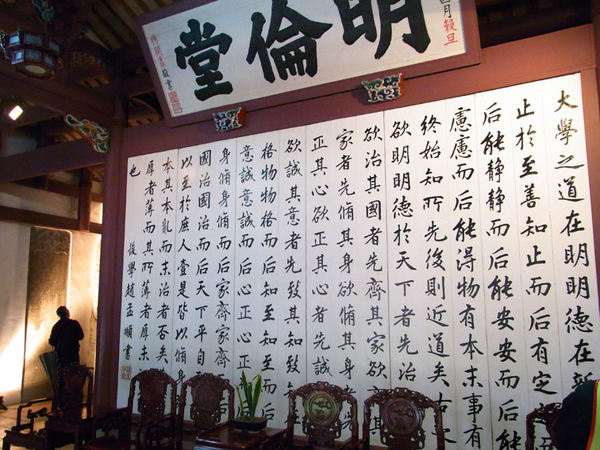 明倫堂
月穀旦
大學之道在明明德在
止於至善知止而后有定
后能靜靜而后能安安而后
慮慮而后能得物有本末事有
終始知所先後則近道矣古
欲明明德於天下者先治
欲治其國者先齊其家欲
家者先脩其身欲脩其
正其心欲正其心者先
欲誠其意者先致其知
格物物格而后知至知至
意誠意誠而后心正心正
身脩身脩而后家齊家齊
國治國治而后天下平自
以至於庶人壹是皆以脩
本其本亂而末治者否矣
厚者薄而其所薄者厚未
也
後學趙孟頫書